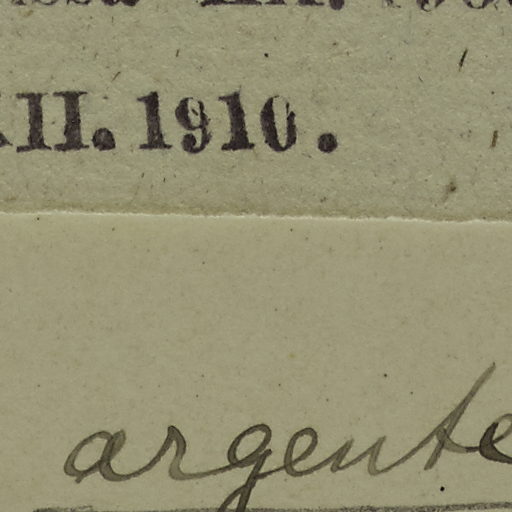 XII. 1910.
argente